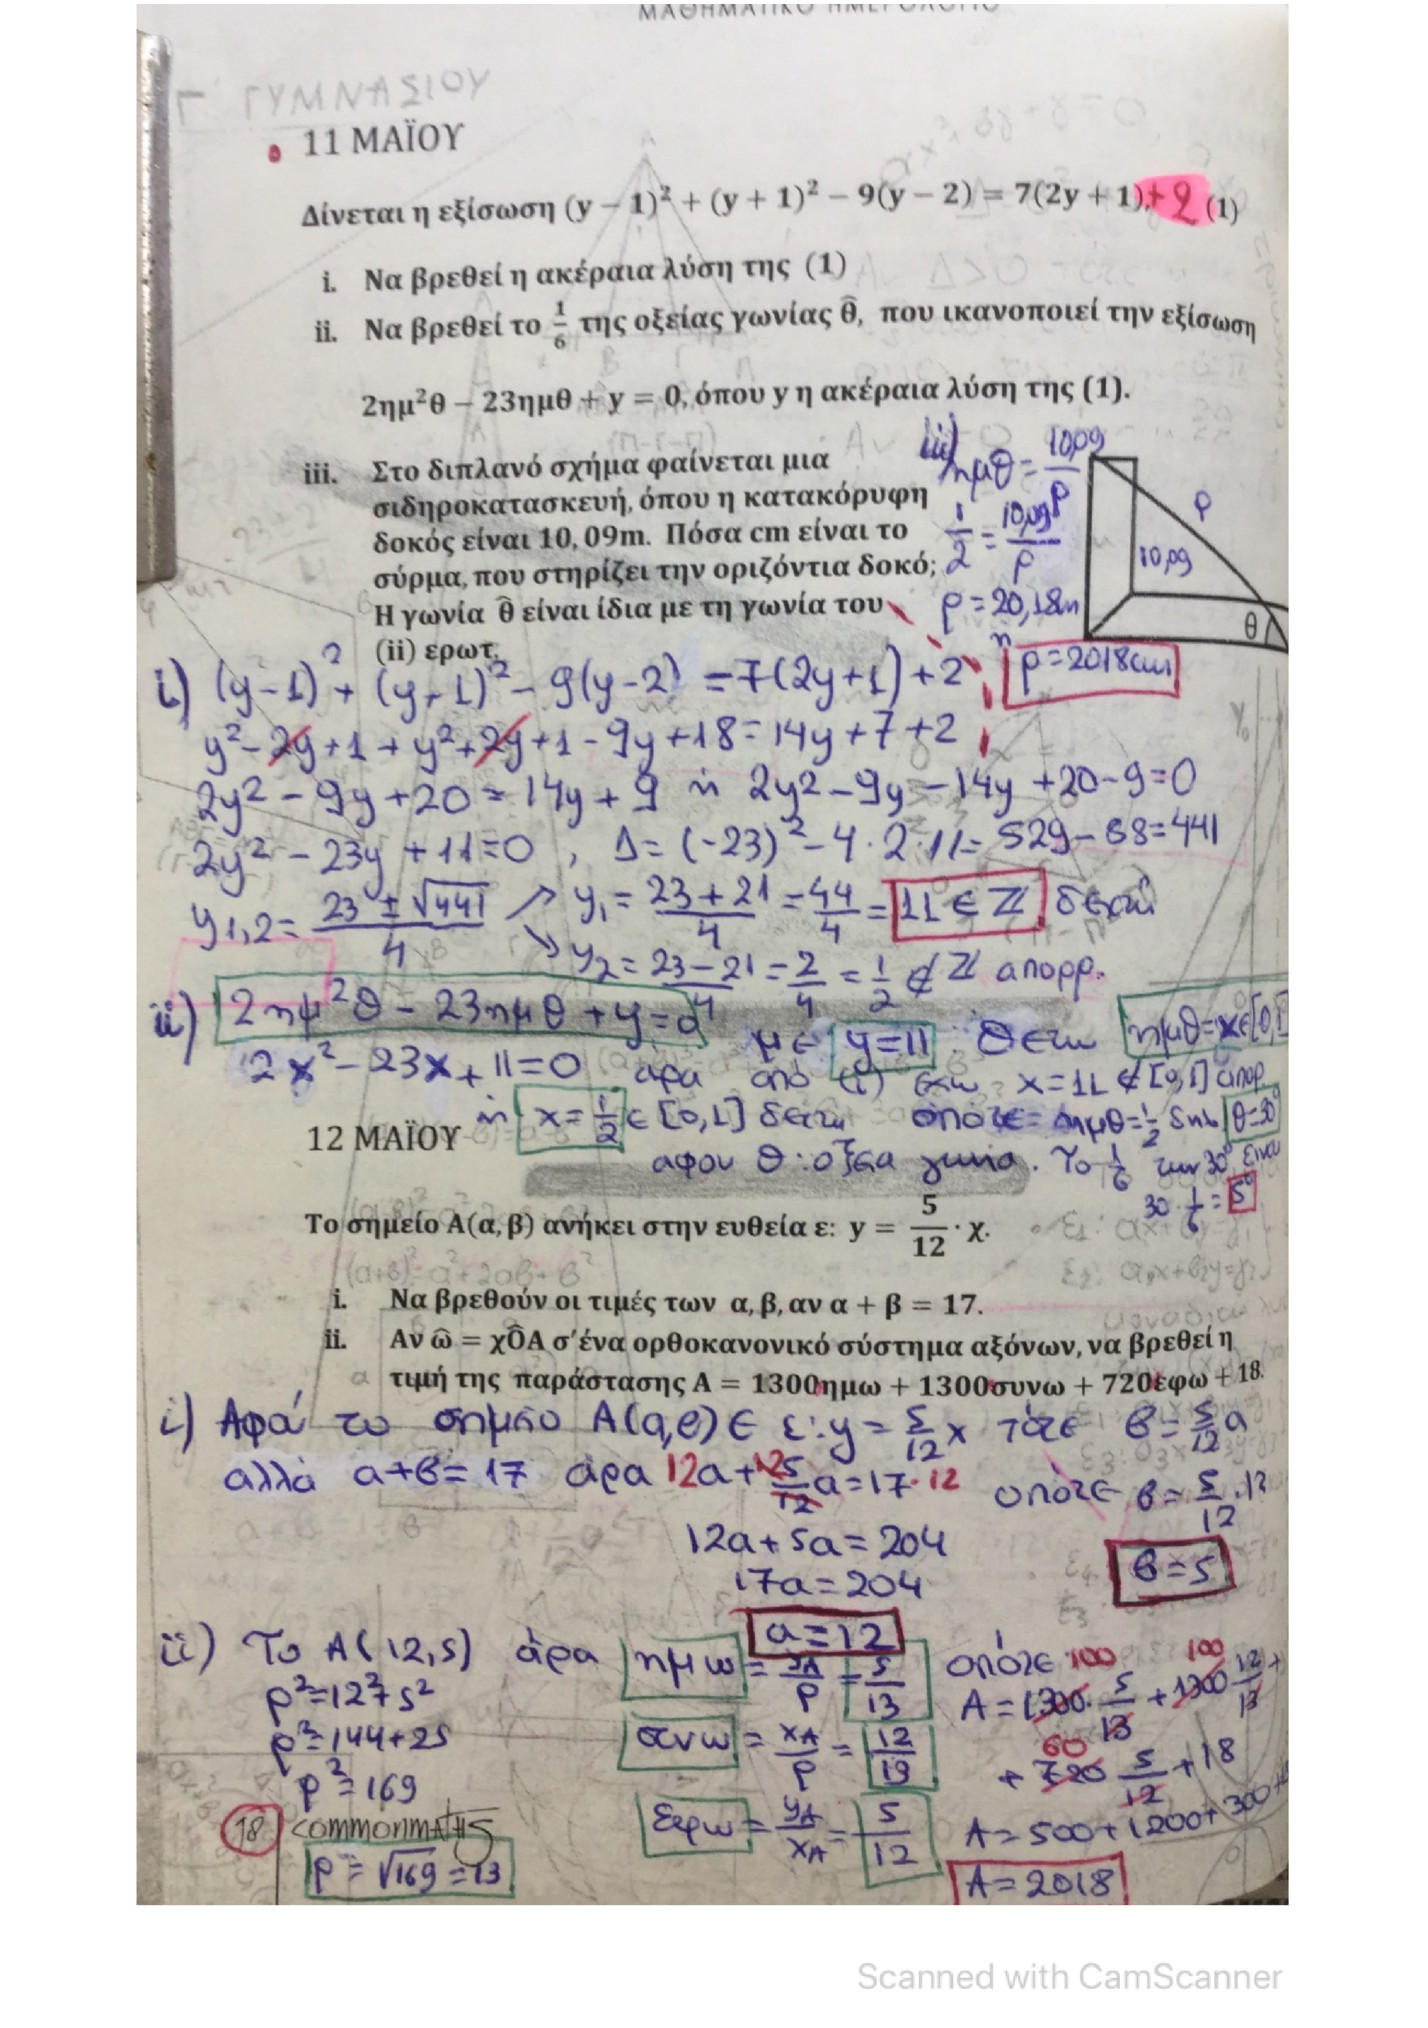 ΜΑΘΗΜΑΤΙΚΟ ΗΜΕΡΟΛΟΓΙΟ
Γ ΓΥΜΝΑΣΙΟΥ
11 ΜΑΪΟΥ
Δίνεται η εξίσωση (y − 1)² + (y + 1)² − 9(y − 2) = 7(2y + 1) + 2 (1)
i. Να βρεθεί η ακέραια λύση της (1)
ii. Να βρεθεί το 1/6 της οξείας γωνίας θ̂, που ικανοποιεί την εξίσωση
2ημ²θ − 23ημθ + y = 0, όπου y η ακέραια λύση της (1).
iii. Στο διπλανό σχήμα φαίνεται μια
σιδηροκατασκευή, όπου η κατακόρυφη
δοκός είναι 10,09m. Πόσα cm είναι το
σύρμα, που στηρίζει την οριζόντια δοκό;
Η γωνία θ̂ είναι ίδια με τη γωνία του
(ii) ερωτ.
iii) ημθ = 10,09/ρ
1/2 = 10,09/ρ
ρ = 20,18m
ή ρ = 2018cm
ρ
10,09
θ
i) (y−1)² + (y+1)² − 9(y−2) = 7(2y+1) + 2
y² − 2y + 1 + y² + 2y + 1 − 9y + 18 = 14y + 7 + 2
2y² − 9y + 20 = 14y + 9 ή 2y² − 9y − 14y + 20 − 9 = 0
2y² − 23y + 11 = 0 , Δ = (−23)² − 4·2·11 = 529 − 88 = 441
y1,2 = 23 ± √441 / 4 ↗ y₁ = 23 + 21 / 4 = 44/4 = 11 ∈ ℤ δεκτή
↘ y₂ = 23 − 21 / 4 = 2/4 = 1/2 ∉ ℤ απορρ.
ii) 2ημ²θ − 23ημθ + y = 0 με y = 11 Θέτω ημθ = x ∈ [0,1]
2x² − 23x + 11 = 0 άρα από (i) έχω x = 11 ∉ [0,1] απορ.
ή x = 1/2 ∈ [0,1] δεκτή οπότε ημθ = 1/2 δηλ θ = 30°
12 ΜΑΪΟΥ
αφου θ : οξεία γωνία. Το 1/6 των 30° είναι
30 · 1/6 = 5°
Το σημείο Α(α, β) ανήκει στην ευθεία ε: y = 5/12 · χ.
i. Να βρεθούν οι τιμές των α, β, αν α + β = 17.
ii. Αν ω̂ = χÔΑ σ'ένα ορθοκανονικό σύστημα αξόνων, να βρεθεί η
τιμή της παράστασης Α = 1300ημω + 1300συνω + 720εφω + 18.
i) Αφού το σημείο Α(α,β) ∈ ε: y = 5/12 x τότε β = 5/12 α
αλλά α+β = 17 άρα 12α + 12 5/12 α = 17·12 οπότε β = 5/12 · 12
12α + 5α = 204
β = 5
17α = 204
α = 12
ii) Το Α(12,5) άρα ημω = yA/ρ = 5/13 οπότε
ρ² = 12² + 5² 100 100
ρ² = 144 + 25 Α = 1300 · 5/13 + 1300 12/13 +
συνω = xA/ρ = 12/13 60
ρ² = 169 + 720 5/12 + 18
18 COMMONMATHS
εφω = yA/xA = 5/12 Α = 500 + 1200 + 300 +
ρ = √169 = 13 Α = 2018
Scanned with CamScanner